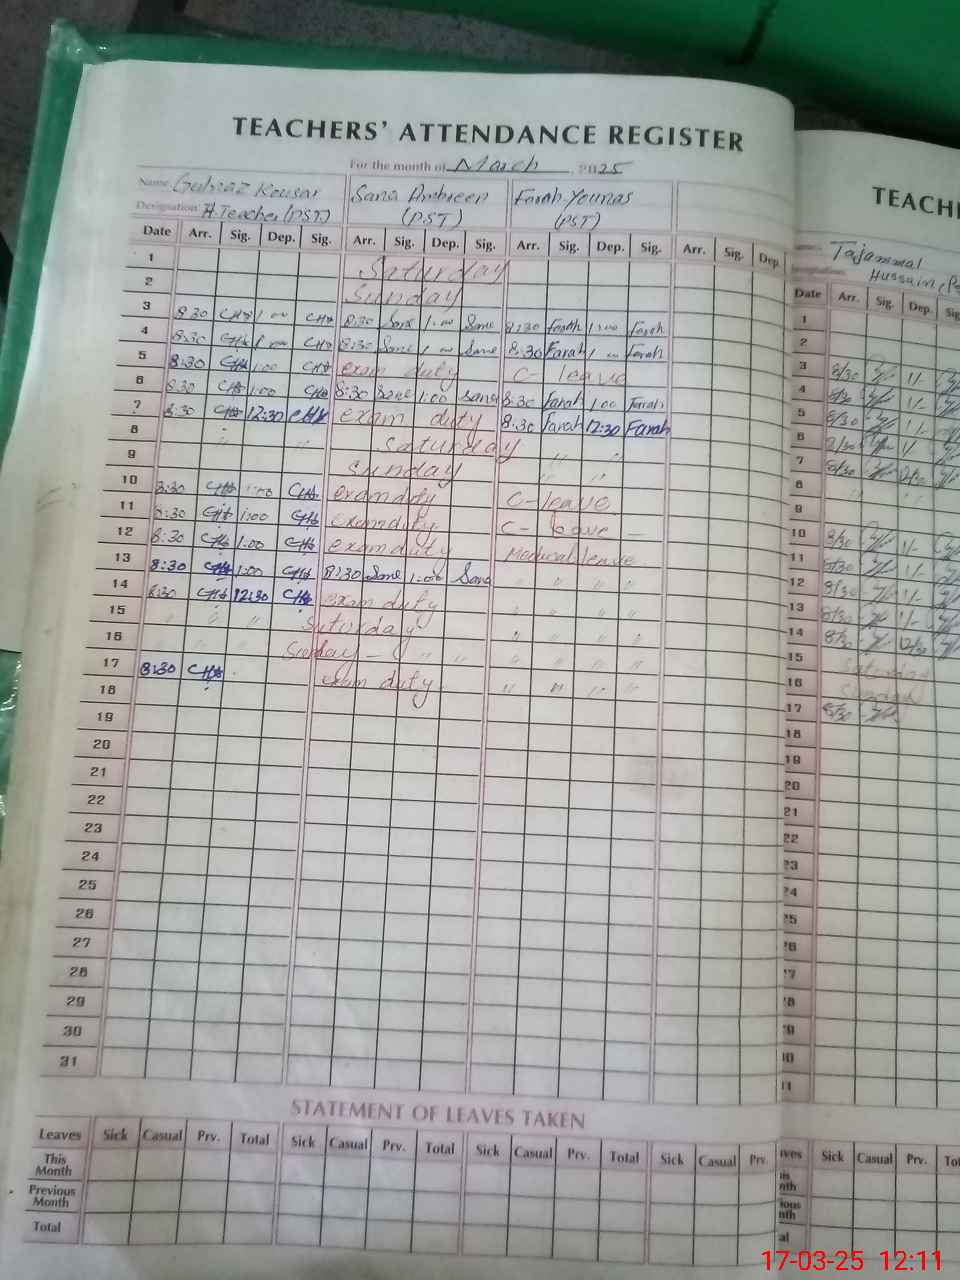 TEACHERS' ATTENDANCE REGISTER
For the month of March, 2025
Name Gulnaz Kousar Sana Ambreen Farah Younas
Designation H.Teacher (PST) (PST) (PST)
Date Arr. Sig. Dep. Sig. Arr. Sig. Dep. Sig. Arr. Sig. Dep. Sig. Arr. Sig. Dep.
1 Saturday
2 Sunday
3 8:30 1:00 8:30 Sana 1:00 Sana 8:30 Farah 1:00 Farah
4 8:30 1:00 8:30 Sana 1:00 Sana 8:30 Farah 1:00 Farah
5 8:30 1:00 exam duty C- leave
6 8:30 1:00 8:30 Sana 1:00 Sana 8:30 Farah 1:00 Farah
7 8:30 12:30 exam duty 8:30 Farah 12:30 Farah
8 " " Saturday " "
9 Sunday " "
10 8:30 1:00 exam duty C-leave
11 8:30 1:00 exam duty C- leave
12 8:30 1:00 exam duty Medical leave
13 8:30 1:00 8:30 Sana 1:00 Sana " " " "
14 8:30 12:30 exam duty " " " "
15 " " " Saturday " " " "
16 " " " Sunday " " " " " "
17 8:30 exam duty " " " "
18
19
20
21
22
23
24
25
26
27
28
29
30
31
STATEMENT OF LEAVES TAKEN
Leaves Sick Casual Prv. Total Sick Casual Prv. Total Sick Casual Prv. Total Sick Casual Prv.
This Month
Previous Month
Total
TEACH
Tajammal
Hussain (
Date Arr. Sig. Dep. Sig
1
2
3 8/30 1/-
4 8/30 1/-
5 8/30 1/-
6 8/30 1/
7 8/30 12/30
8
9
10 8/30 1/-
11 8/30 1/-
12 8/30 1/-
13 8/30 1/-
14 8/30 12/30
15 Saturday
16 Sunday
17 8/30
18
19
20
21
22
23
24
25
26
27
28
29
30
31
Sick Casual Prv. To
17-03-25 12:11